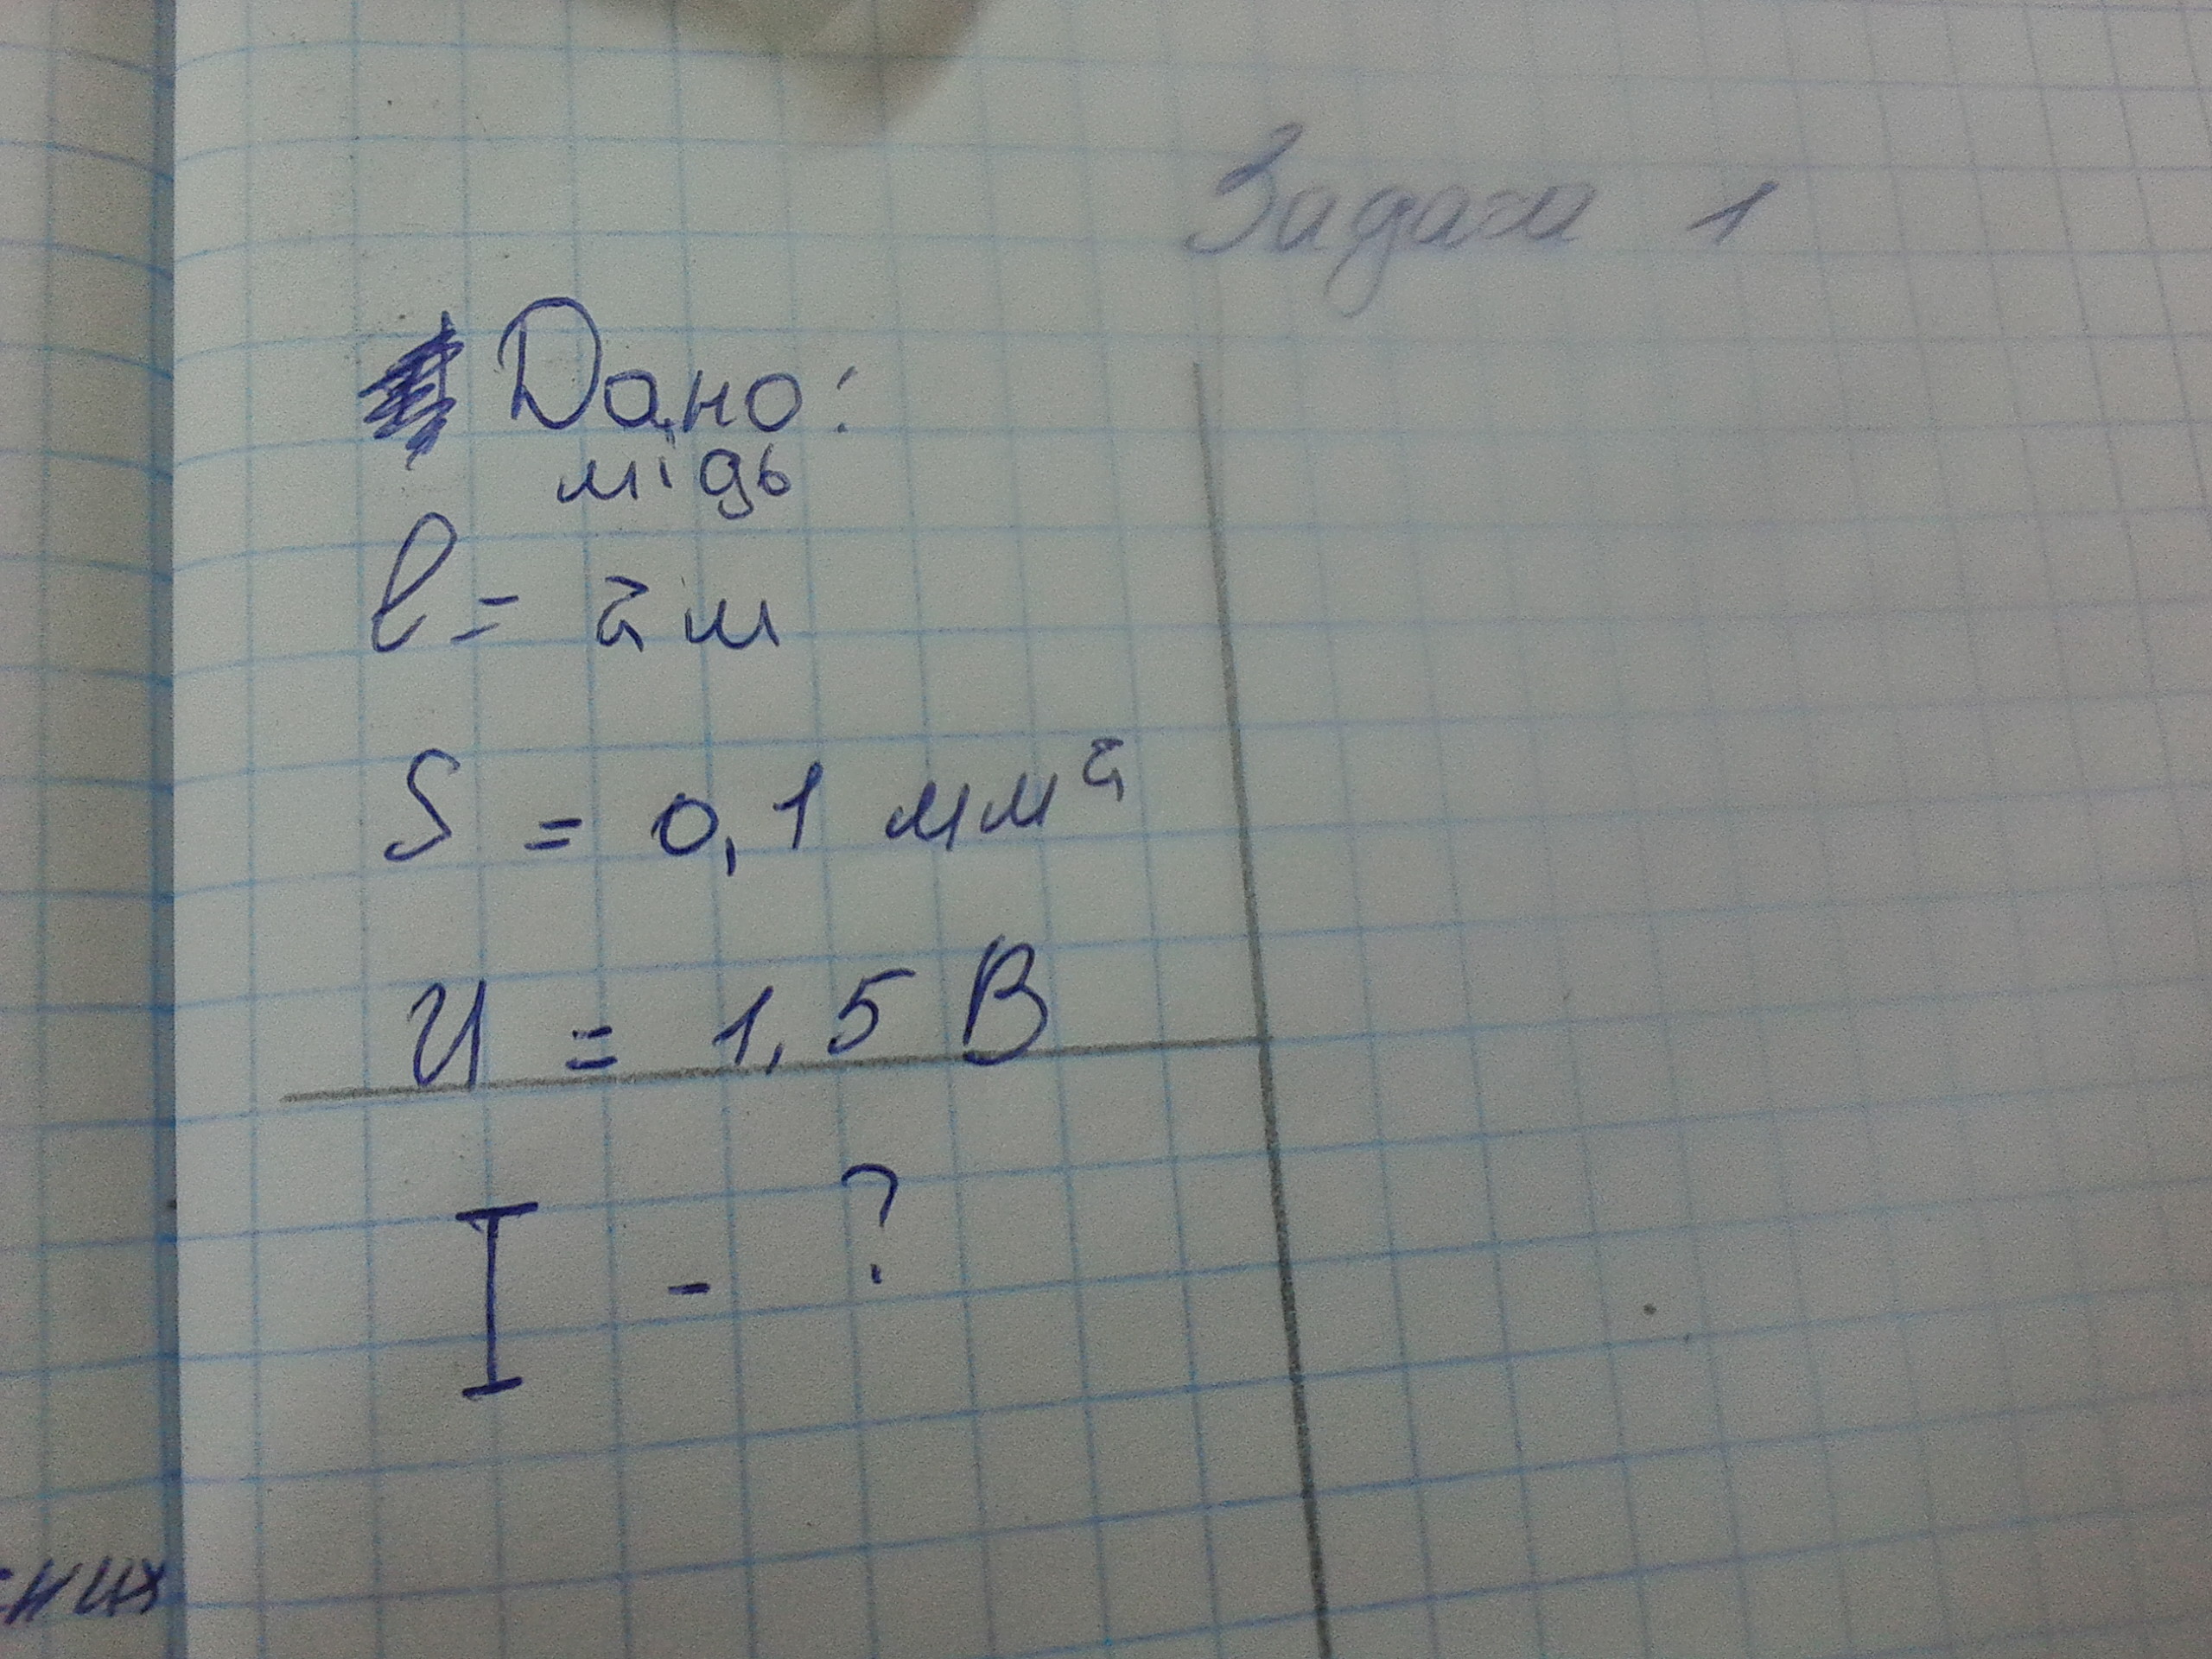 Задача 1
Дано:
мідь
l = 2 м
S = 0,1 мм²
U = 1,5 В
I - ?